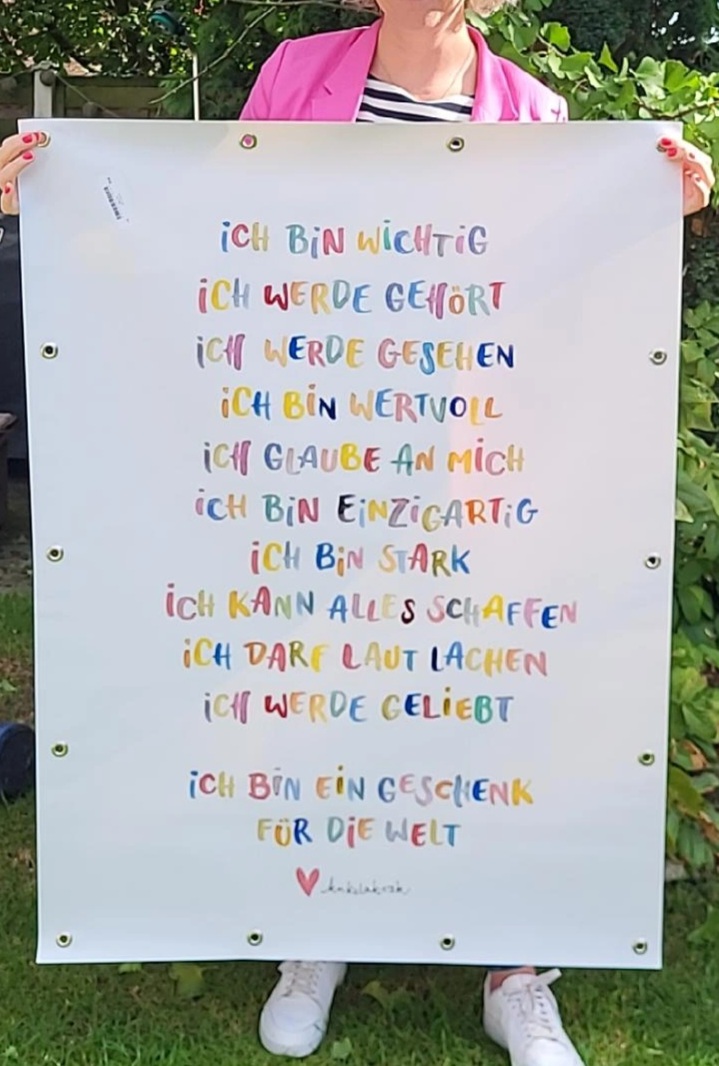 iCH BiN WiCHTiG
iCH WERDE GEHÖRT
iCH WERDE GESEHEN
iCH BiN WERTVOLL
iCH GLAUBE AN MiCH
iCH BiN EiNZiGARTiG
iCH BiN STARK
iCH KANN ALLES SCHAFFEN
iCH DARF LAUT LACHEN
iCH WERDE GELiEBT
iCH BiN EiN GESCHENK
FÜR DiE WELT